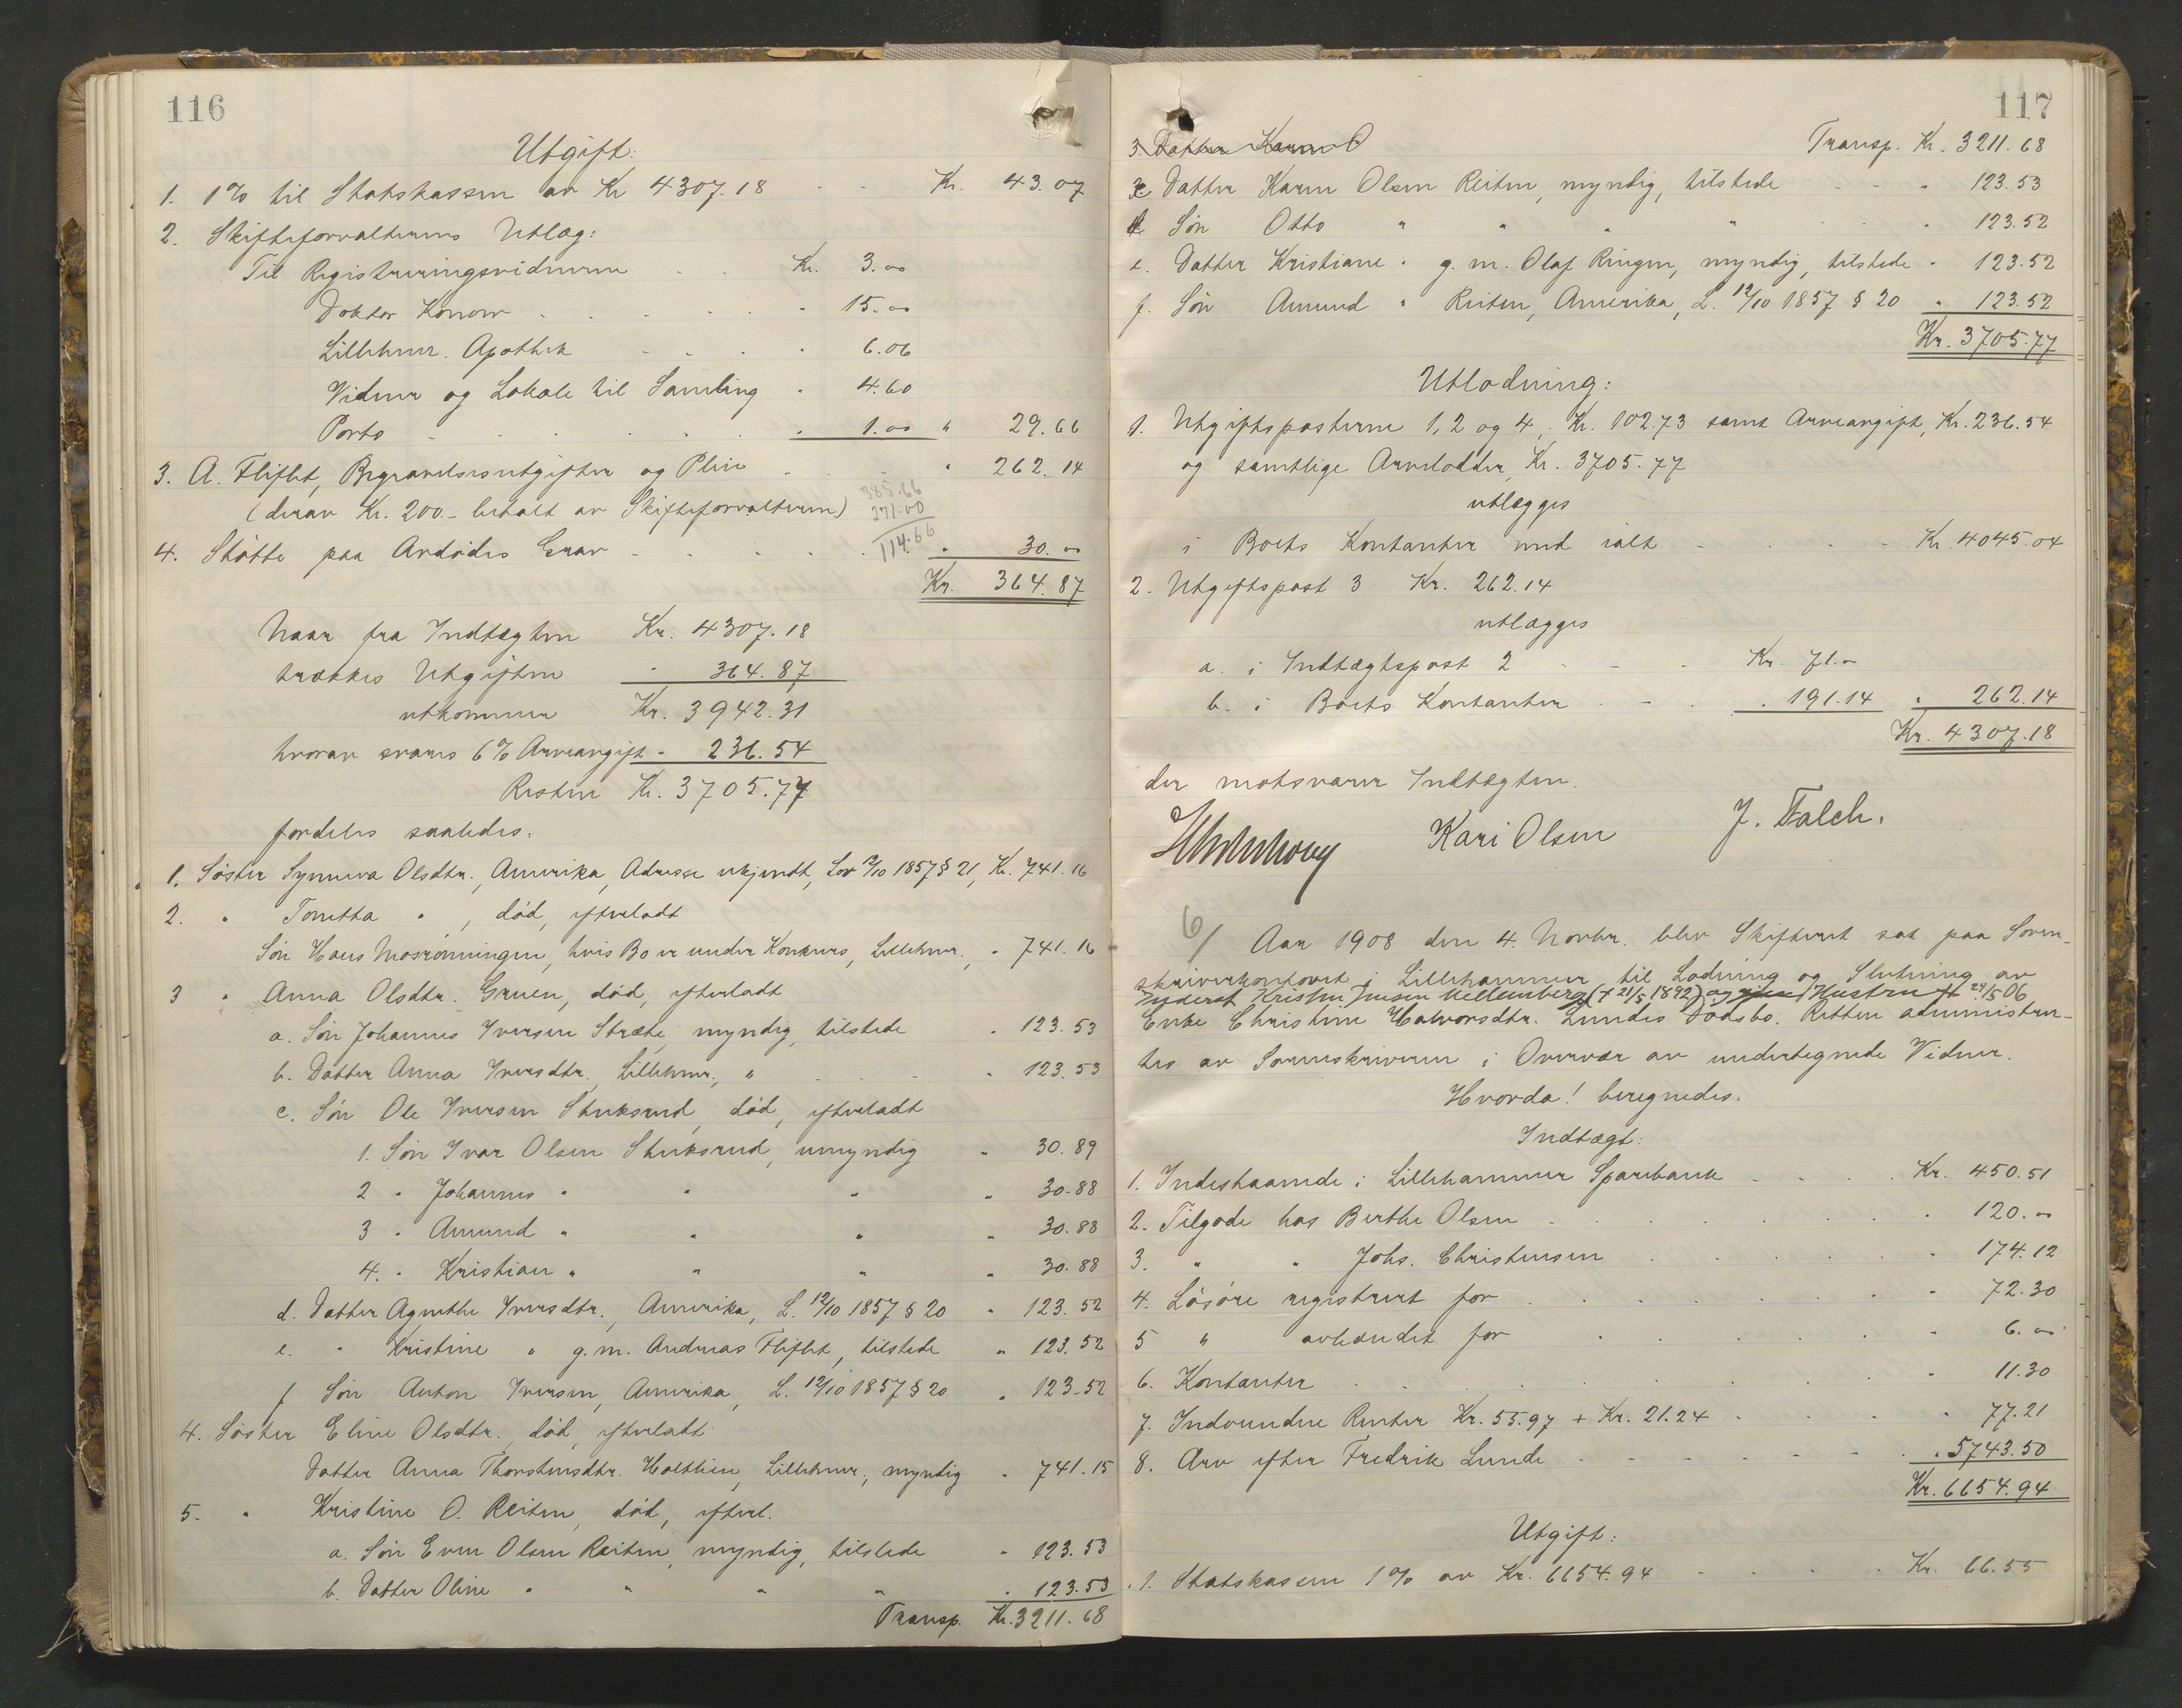 116
Utgift:
1. 1% til Statskassen av Kr 4307.18 - - Kr. 43.07
2. Skifteforvalterens Utlæg:
Til Registreringsvidnerne . . Kr. 3.00
Doktor Konow . . . . . . 15.00
Lillehmr. Apothek - . . . 6.06
Vidner og Lokale til Samling . 4.60
Porto . . . . . . 1.00 " 29.66
3. A. Fliflet, Begravelsesutgifter og Pleie - - " 262.14
(derav Kr. 200.- betalt av Skifteforvalteren) 385.66
271.00
114.66
4. Støtte paa Avdødes Grav - . . . . " 30.00
Kr. 364.87
Naar fra Indtægten Kr. 4307.18
trækkes Utgiften - 364.87
utkommer Kr. 3942.31
hvorav svares 6% Arveavgift - 236.54
Resten Kr. 3705.77
fordeles saaledes.
1. Søster Synneva Olsdtr., Amerika, Adresse ukjendt, Lov 12/10 1857 § 21, Kr. 741.16
2. " Tonetta " , død, efterladt
Søn Hans Mosrønningen, hvis Bo er under Konkurs, Lillehmr., " 741.16
3 " Anna Olsdtr. Gruen, død, efterladt
a. Søn Johannes Iversen Stræte, myndig, tilstede " 123.53
b. Datter Anna Iversdtr., Lillehmr., " . . - " 123.53
c. Søn Ole Iversen Stuksrud, død, efterladt
1. Søn Ivar Olsen Stuksrud, umyndig " 30.89
2 " Johannes " " " " 30.88
3 " Amund " " " " 30.88
4. " Kristian " " " " 30.88
d. Datter Agnethe Iversdtr., Amerika, L. 12/10 1857 § 20 " 123.52
e. " Kristine " g.m. Andreas Fliflet, tilstede " 123.52
f Søn Anton Iversen, Amerika, L. 12/10 1857 § 20 " 123.52
4. Søster Eline Olsdtr., død, efterladt
Datter Anna Thorstensdtr. Holthien, Lillehmr., myndig " 741.15
5. " Kristine O. Reiten, død, efterl.
a. Søn Even Olsen Reiten, myndig, tilstede " 123.53
b. Datter Oline " " " " " 123.53
Transp. Kr. 3211.68
117
3 Datter Karen O
Transp. Kr. 3211.68
c Datter Karen Olsen Reiten, myndig, tilstede - - " 123.53
d. Søn Otto " " " " . . " 123.52
e. Datter Kristiane " g.m. Olaf Ringen, myndig, tilstede " 123.52
f. Søn Amund " Reiten, Amerika, L. 12/10 1857 § 20 " 123.52
Kr. 3705.77
Utlodning:
1. Utgiftsposterne 1, 2 og 4, Kr. 102.73 samt Arveavgift, Kr. 236.54
og samtlige Arvelodder, Kr. 3705.77
utlægges
i Boets Kontanter med ialt - . . - Kr. 4045.04
2. Utgiftspost 3 Kr. 262.14
utlægges
a. i Indtægtspost 2 - - - Kr. 71.-
b. i Boets Kontanter . - . " 191.14 " 262.14
Kr. 4307.18
der motsvarer Indtægten.
Kari Olsen J. Falch.
6/ Aar 1908 den 4. Novbr. blev Skifteret sat paa Soren-
skriverkontoret i Lillehammer til Lodning og Slutning av
Kristen Jensen (+ 21/5 1892) og Hustru 24/5 06
Enke Christine Halvorsdtr. Lundes Dødsbo. Retten administrer-
tes av Sorenskriveren i Overvær av undertegnede Vidner.
Hvorda! beregnedes.
Indtægt:
1. Indestaaende i Lillehammer Sparebank . . . . Kr. 450.51
2. Tilgode hos Berthe Olsen . . . . . . . " 120.00
3. " " Johs. Christensen . . . . . " 174.12
4. Løsøre registrert for . . . . . . " 72.30
5 " avhændet for . . . . . " 6.00
6. Kontanter . . . . . . . " 11.30
7. Indvundne Renter Kr. 55.97 + Kr. 21.24 . . . " 77.21
8. Arv efter Fredrik Lunde - - - - - - . " 5743.50
Kr. 6654.94
Utgift:
1. Statskassen 1% av Kr. 6654.94 - . . . Kr. 66.55